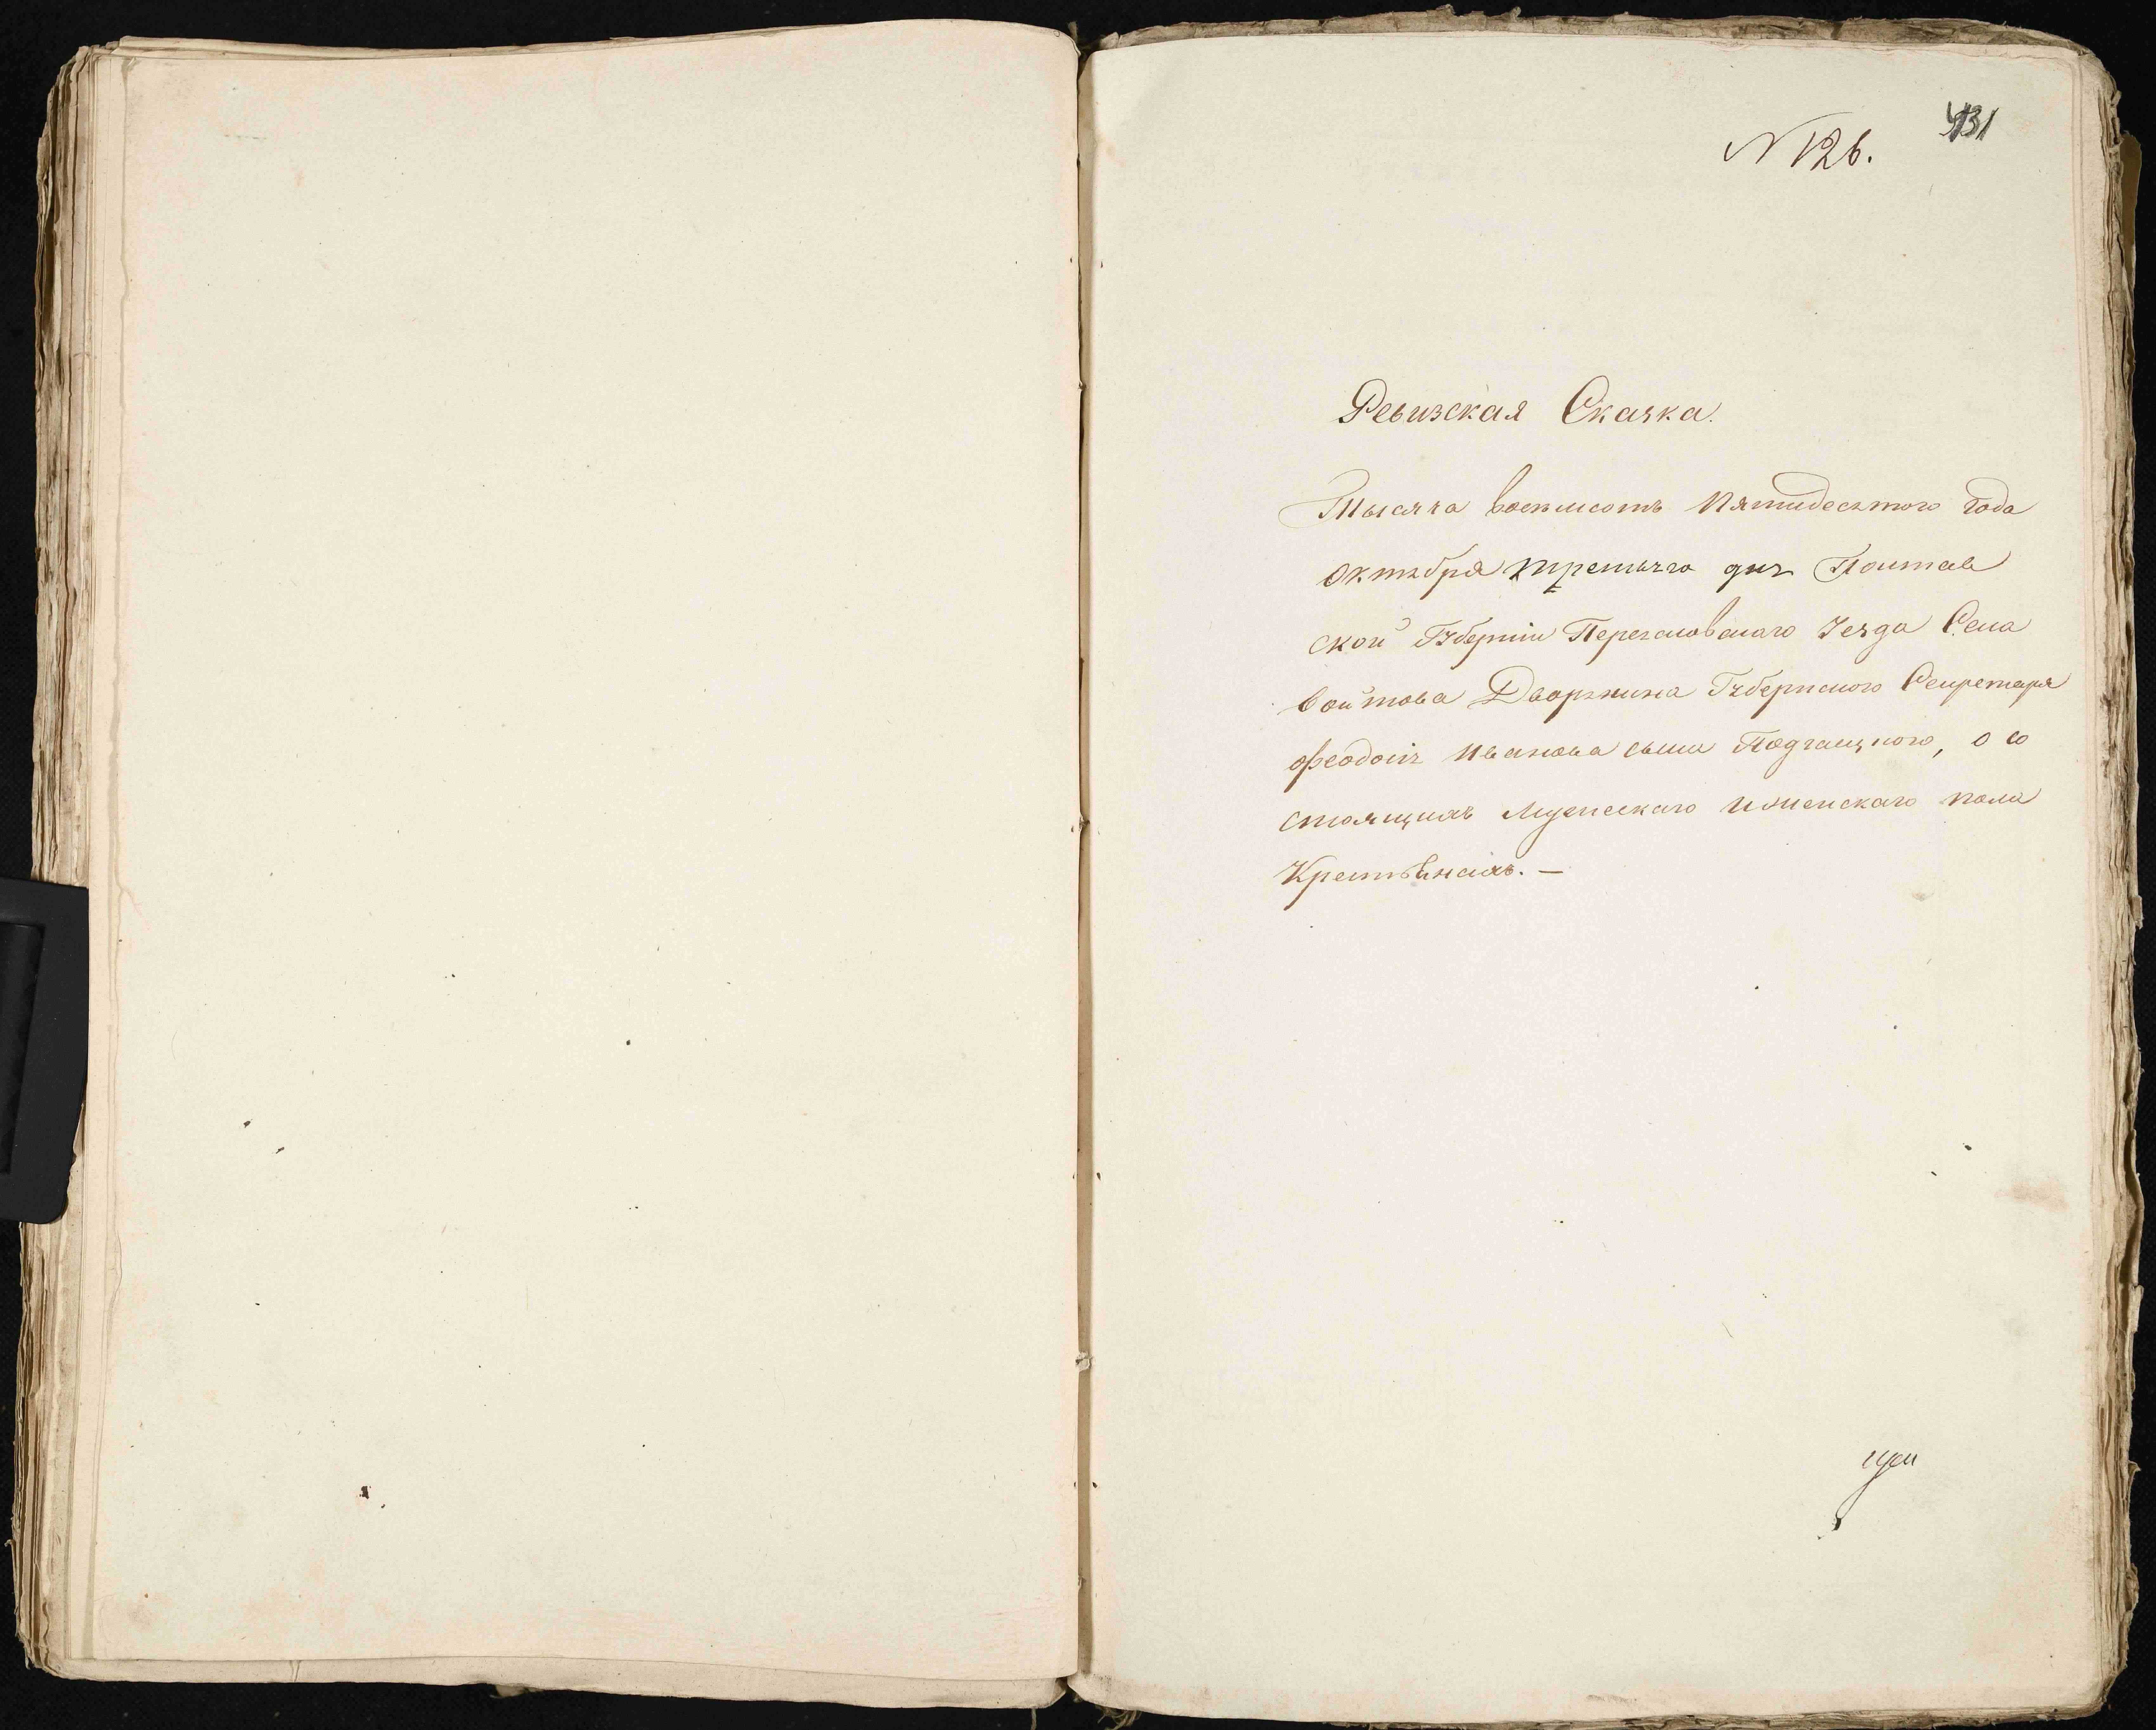 431
N 126.
Ревизская Сказка.
Тысяча восемсотъ Пятидесятого года
Октября третьяго дня Полтав
ской Губерніи Переяславскаго Уезда Села
Войтова Дворянина Губернского Секретаря
Феодосія Иванова сына Подгаецкого, о со
стоящихъ Мужескаго и женскаго пола
Крестьянахъ. —